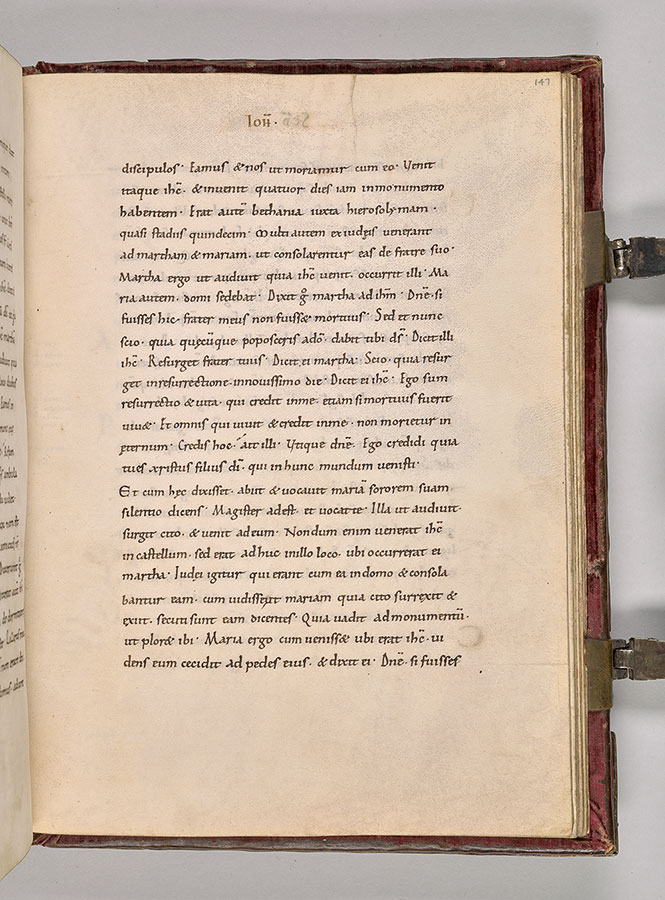 147
Ioħ·
discipulos· Eamus & nos ut moriamur cum eo· Venit
itaque ihc̄· & invenit quatuor dies iam inmonumento
habentem· Erat autē bethania iuxta hierosolymam·
quasi stadiis quindecim· Multi autem ex iudęis venerant
ad martham & mariam· ut consolarentur eas de fratre suo·
Martha ergo ut audivit quia ihc̄ venit· occurrit illi· Ma
ria autem· domi sedebat· Dixit g° martha ad ihm̄· Dnē· si
fuisses hic· frater meus non fuiss& mortuus· Sed et nunc
scio· quia quęcūque poposceris adō· dabit tibi ds̄· Dicit illi
ihc̄· Resurget frater tuus· Dicit ei martha· Scio· quia resur
get inresurrectione· innovissimo die· Dicit ei ihc̄· Ego sum
resurrectio & vita· qui credit inme· etiam si mortuus fuerit
viv&· Et omnis qui vivit & credit inme· non morietur in
ęternum· Credis hoc· Ait illi· Vtique dnē· Ego credidi quia
tues xristus filius dī· qui in hunc mundum venisti·
Et cum hęc dixisset· abiit & vocavit mariā sororem suam·
silentio dicens· Magister adest· et vocat te· Illa ut audivit·
surgit cito· & venit ad eum· Nondum enim venerat ihc̄
in castellum· sed erat ad huc inillo loco· ubi occurrerat ei
martha· Iudei igitur qui erant cum ea in domo & consola
bantur eam· cum vidissent mariam quia cito surrexit &
exiit· secuti sunt eam dicentes· Quia vadit ad monumentū·
ut plor& ibi· Maria ergo cum veniss& ubi erat ihc̄· vi
dens eum cecidit ad pedes eius· & dixit ei· Dnē· si fuisses